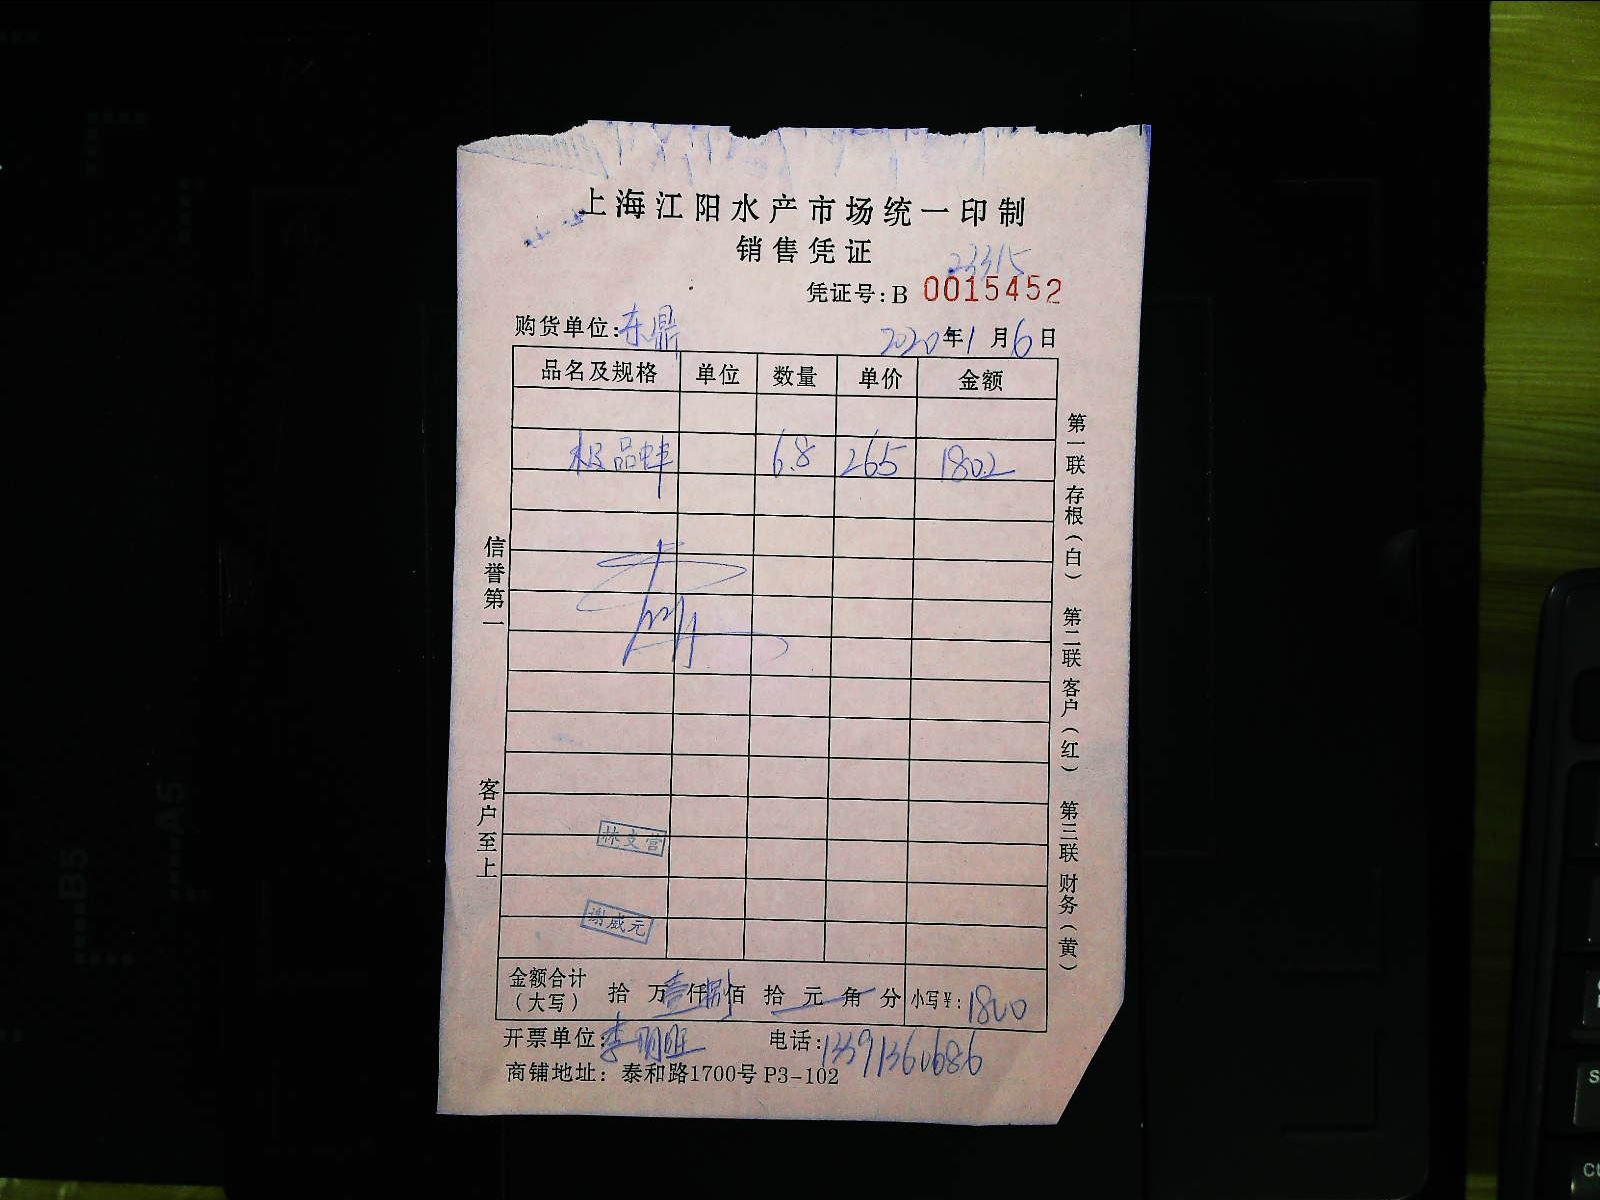 上海江阳水产市场统一印制
销售凭证
23315
凭证号:B 0015452
购货单位:东鼎 2020年1月6日
品名及规格 单位 数量 单价 金额
极品蚌 6.8 265 1802
信誉第一
客户至上
第一联存根(白) 第二联客户(红) 第三联财务(黄)
林文营
谢威元
金额合计(大写) 拾万壹仟捌佰拾元角分 小写¥:1800
开票单位:李明旺 电话:13391360686
商铺地址: 泰和路1700号 P3-102
B5
A5